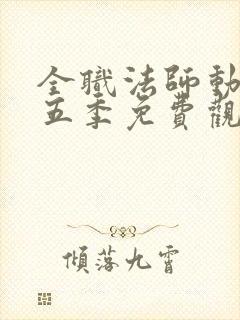 全職法師動
五季免費觀
傾落九霄